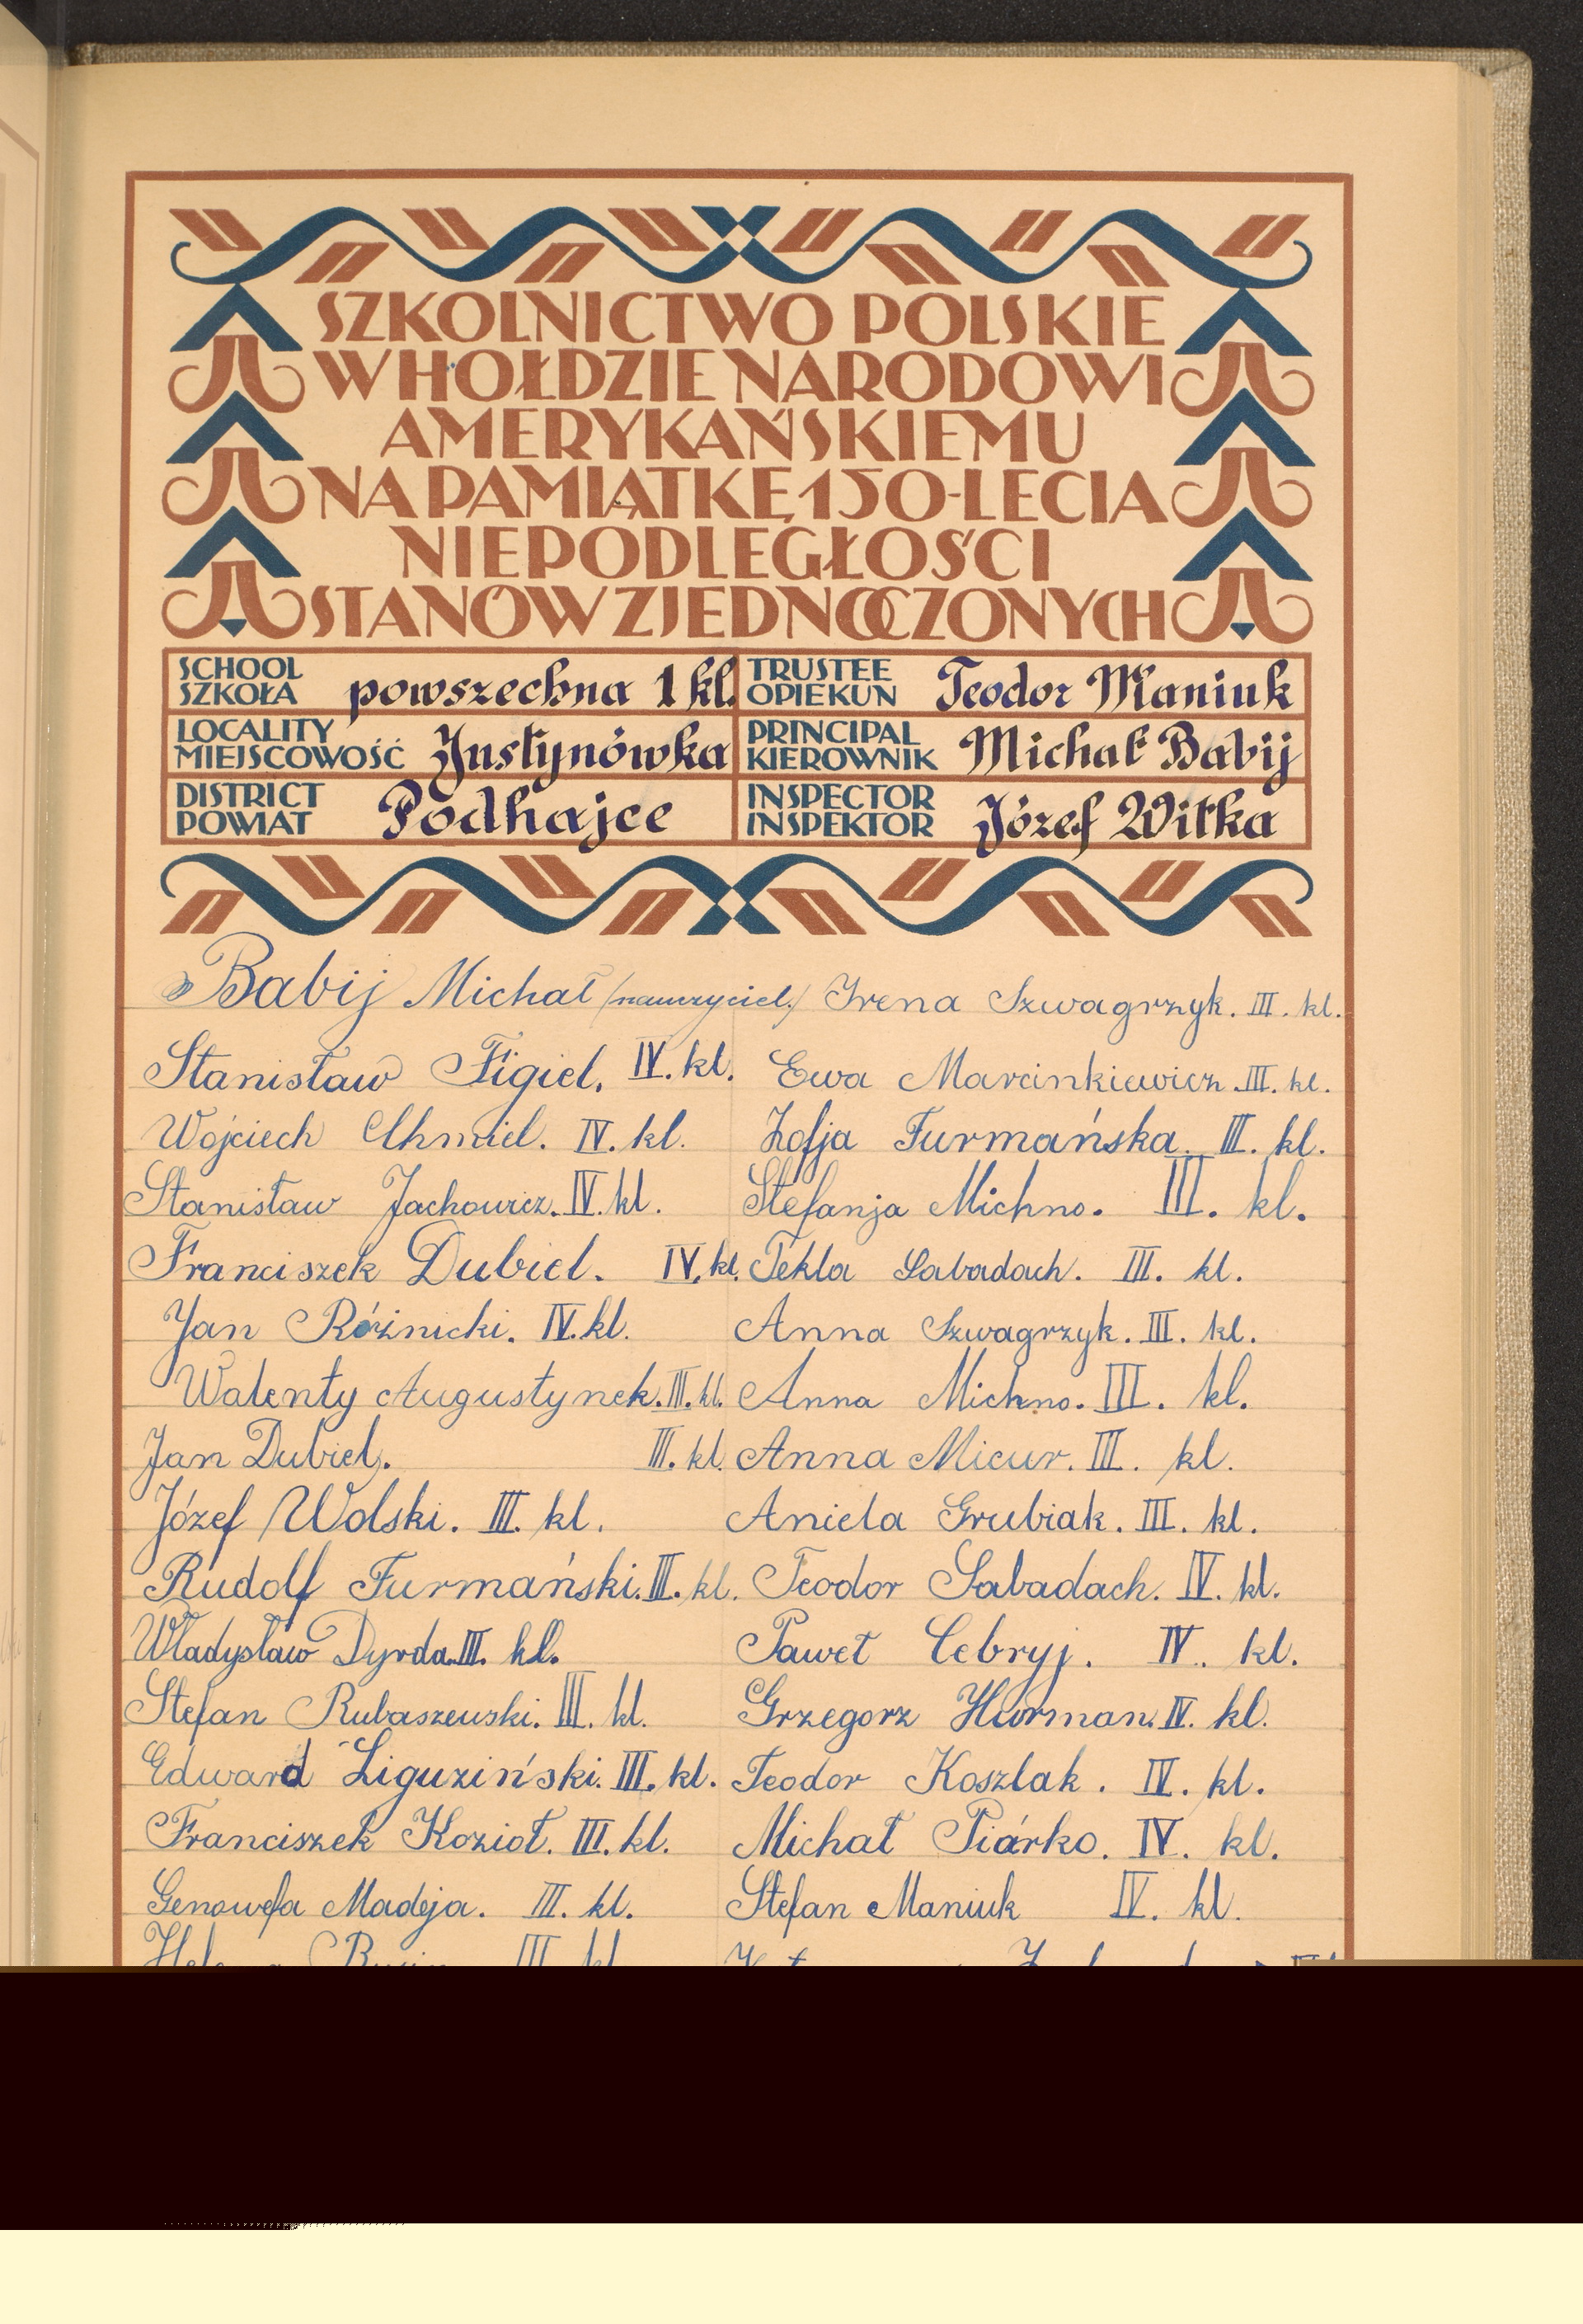 SZKOLNICTWO POLSKIE
W HOŁDZIE NARODOWI
AMERYKAŃSKIEMU
NA PAMIĄTKĘ 150-LECIA
NIEPODLEGŁOŚCI
STANÓW ZJEDNOCZONYCH
SCHOOL
SZKOŁA powszechna 1 kl.
TRUSTEE
OPIEKUN Teodor Maniuk
LOCALITY
MIEJSCOWOŚĆ Justynówka
PRINCIPAL
KIEROWNIK Michał Babij
DISTRICT
POWIAT Podhajce
INSPECTOR
INSPEKTOR Józef Witka
Babij Michał (nauczyciel.)
Stanisław Figiel. IV. kl.
Wojciech Chmiel. IV. kl.
Stanisław Jachowicz. IV. kl.
Franciszek Dubiel. IV. kl.
Jan Różnicki. IV. kl.
Walenty Augustynek. III. kl.
Jan Dubiel. III. kl.
Józef Wolski. III. kl.
Rudolf Furmański. III. kl.
Władysław Dyrda. III. kl.
Stefan Rubaszewski. III. kl.
Edward Liguziński. III. kl.
Franciszek Kozioł. III. kl.
Genowefa Madeja. III. kl.
III kl
Irena Szwagrzyk. III. kl.
Ewa Marcinkiewicz. III. kl.
Zofja Furmańska. III. kl.
Stefanja Michno. III. kl.
Tekla Sabadach. III. kl.
Anna Szwagrzyk. III. kl.
Anna Michno. III. kl.
Anna Micur. III. kl.
Aniela Grubiak. III. kl.
Teodor Sabadach. IV. kl.
Paweł Cebryj. IV. kl.
Grzegorz Hurman. IV. kl.
Teodor Koszlak. IV. kl.
Michał Piárko. IV. kl.
Stefan Maniuk IV. kl.